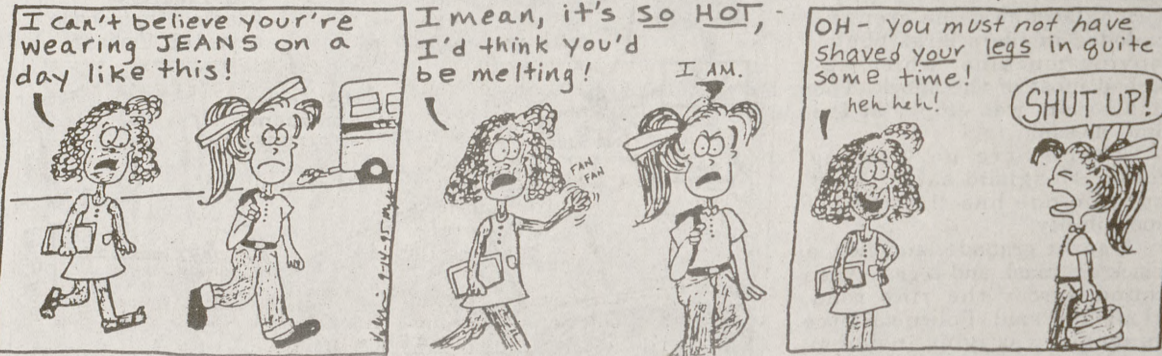 I can't believe your're
wearing JEANS on a
day like this!
9-14-95
I mean, it's SO HOT,
I'd think you'd
be melting!
I AM.
FAN
FAN
OH- you must not have
shaved your legs in quite
some time!
heh heh!
SHUT UP!